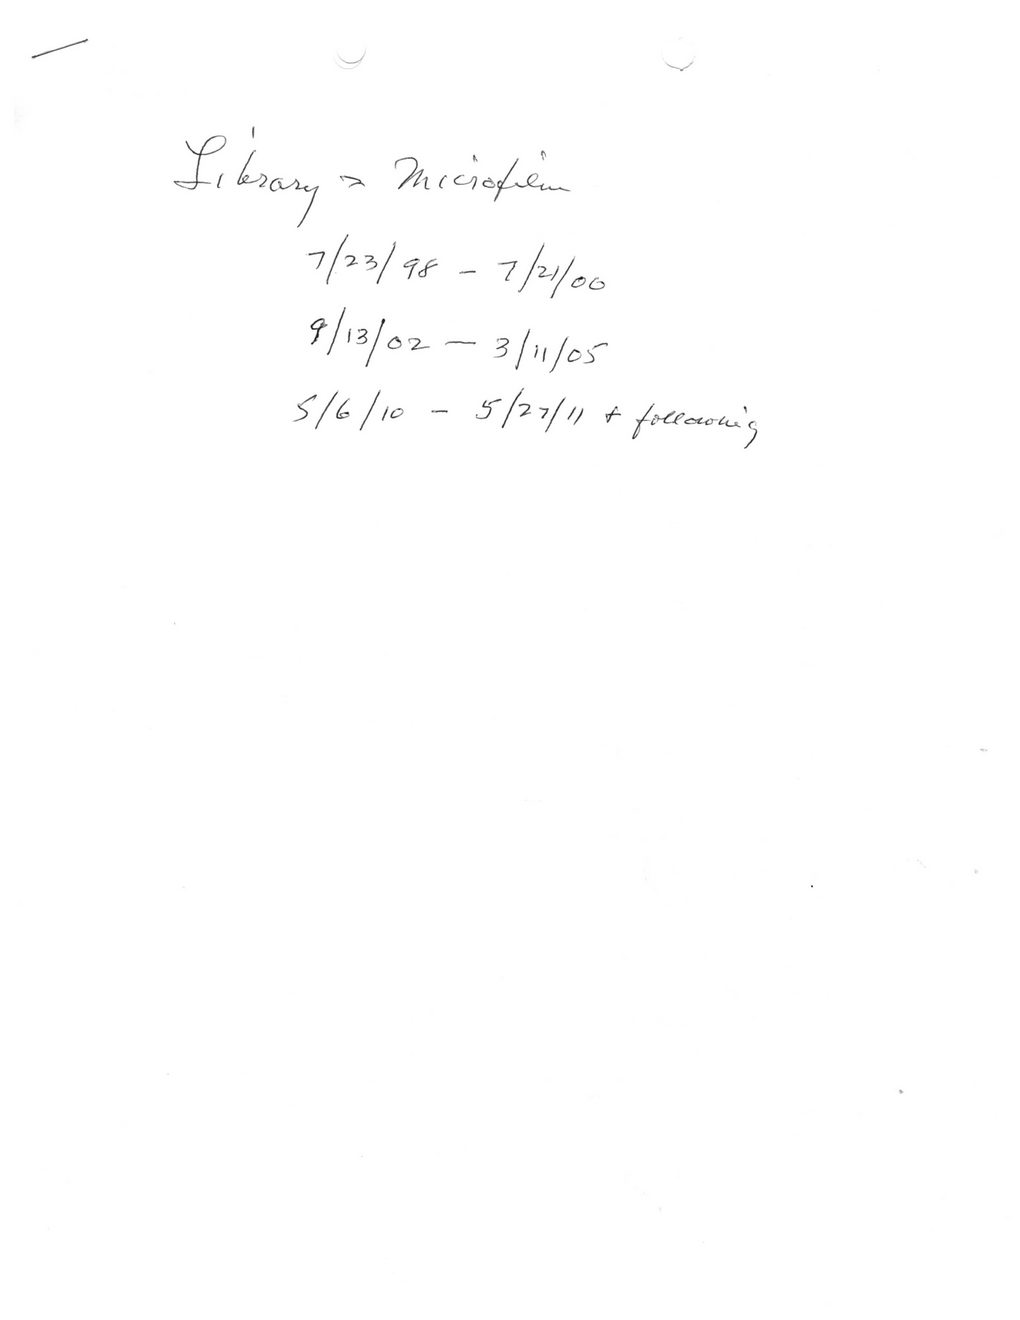 Library > Microfilm
7/23/98 - 7/21/00
9/13/02 - 3/11/05
5/6/10 - 5/27/11 + following